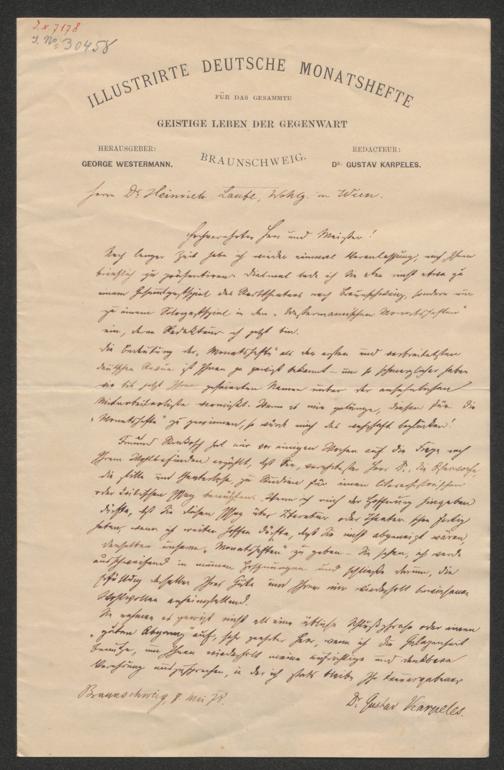 I. N. 7178
I. No. 30458
ILLUSTRIRTE DEUTSCHE MONATSHEFTE
FÜR DAS GESAMMTE
GEISTIGE LEBEN DER GEGENWART
HERAUSGEBER:
GEORGE WESTERMANN.
BRAUNSCHWEIG.
REDACTEUR:
Dr. GUSTAV KARPELES.
Herrn Dr. Heinrich Laube, Wohlg. in Wien.
Hochverehrter Herr und Meister!
Nach langer Zeit habe ich wieder einmal Veranlassung, mich Ihnen
brieflich zu präsentiren. Diesmal lade ich Sie aber nicht etwa zu
einem Gesammtgastspiel des Stadttheaters nach Braunschweig, sondern nur
zu einem Sologastspiel in den „Westermannschen Monatsheften"
ein, deren Redakteur ich jetzt bin.
Die Bedeutung der „Monatshefte" als der ersten und verbreitetsten
deutschen Revue ist Ihnen ja gewiß bekannt – um so schmerzlicher haben
wir bis jetzt Ihren gefeierten Namen unter der ansehnlichen
Mitarbeiterliste vermißt. Wenn es mir gelänge, diesen für die
„Monatshefte" zu gewinnen, so würde mich das wahrhaft beglücken!
Freund hat mir vor einigen Wochen auf die Frage nach
Ihrem Wohlbefinden erzählt, daß Sie, verehrtester Herr Dr., die
die stille und theaterlose, zu Studien für einen
oder Essay benützen. Wenn ich mich der Hoffnung hingeben
dürfte, daß Sie diesen Essay über Literatur oder Theater schon fertig
haben, wenn ich weiter hoffen dürfte, daß Sie nicht abgeneigt wären,
denselben unseren „Monatsheften" zu geben – Sie sehen, ich werde
ausschweifend in meinen Hoffnungen und schließe darum, die
Erfüllung derselben Ihrer Güte und Ihrem mir wiederholt bewiesenen
Wohlwollen anheimstellend.
Sie nehmen es gewiß nicht als eine übliche Schlußphrase oder einen
„guten Abgang" auf, sehr geehrter Herr, wenn ich die Gelegenheit
benutze, um Ihnen wiederholt meine aufrichtige und dankbare
Verehrung auszusprechen, in der ich stets bleibe Ihr treuergebener
Braunschweig, 8 Mai 78
Dr. Gustav Karpeles.